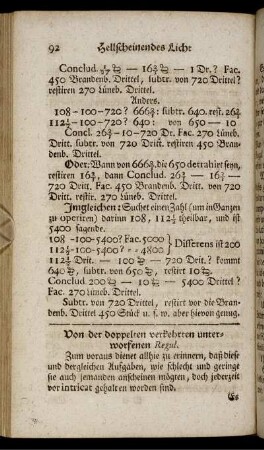 92 Hellscheinendes Licht
Conclud. — 16⅔ — 1 Dr.? Fac.
450 Brandenb. Drittel, subtr. von 720 Drittel
restiren 270 Lüneb. Drittel.
Anders.
108-100-720? 666⅔: subtr. 640. rest. 26⅔
112½-100-720? 640: von 650 — 10
Concl. 26⅔-10-720 Dr. Fac. 270 Lüneb.
Dritt. subtr. von 720 Dritt. restiren 450 Bran-
denb. Drittel.
Oder: Wann von 666⅔ die 650 detrahiret seyn,
restiren 16⅔, dann Conclud. 26⅔ — 16⅔ —
720 Dritt. Fac. 450 Brandenb. Dritt. von 720
Dritt. restir. 270 Lüneb. Drittel.
Imgleichen: Suchet einen Zahl (um in Ganzen
zu operiren) darinn 108, 112½ theilbar, und ist
5400 sagende.
108-100-5400? Fac. 5000 } Differens ist 200
112½-100-5400? = 4800
112½ Drit. — 100 — 720 Drit.? kommt
640, subtr. von 650, restirt 10.
Conclud. 200 — 10 — 5400 Drittel?
Fac. 270 Lüneb. Drittel.
Subtr. von 720 Drittel, restiret vor die Bran-
denb. Drittel 450 Stück u. s. w. aber hievon genug.
Von der doppelten verkehrten unter-
worfenen Regul.
Zum voraus dienet allhie zu erinnern, daß diese
und dergleichen Aufgaben, wie schlecht und geringe
sie auch jemanden anscheinen mögten, doch jederzeit
vor intricat gehalten worden sind.
Es